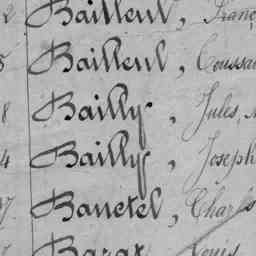 2 Bailleul, Franç
5 Bailleul, Toussai
8 Bailly, Jules,
4 Bailly, Joseph
7 Banetel, Charles
Barat Louis